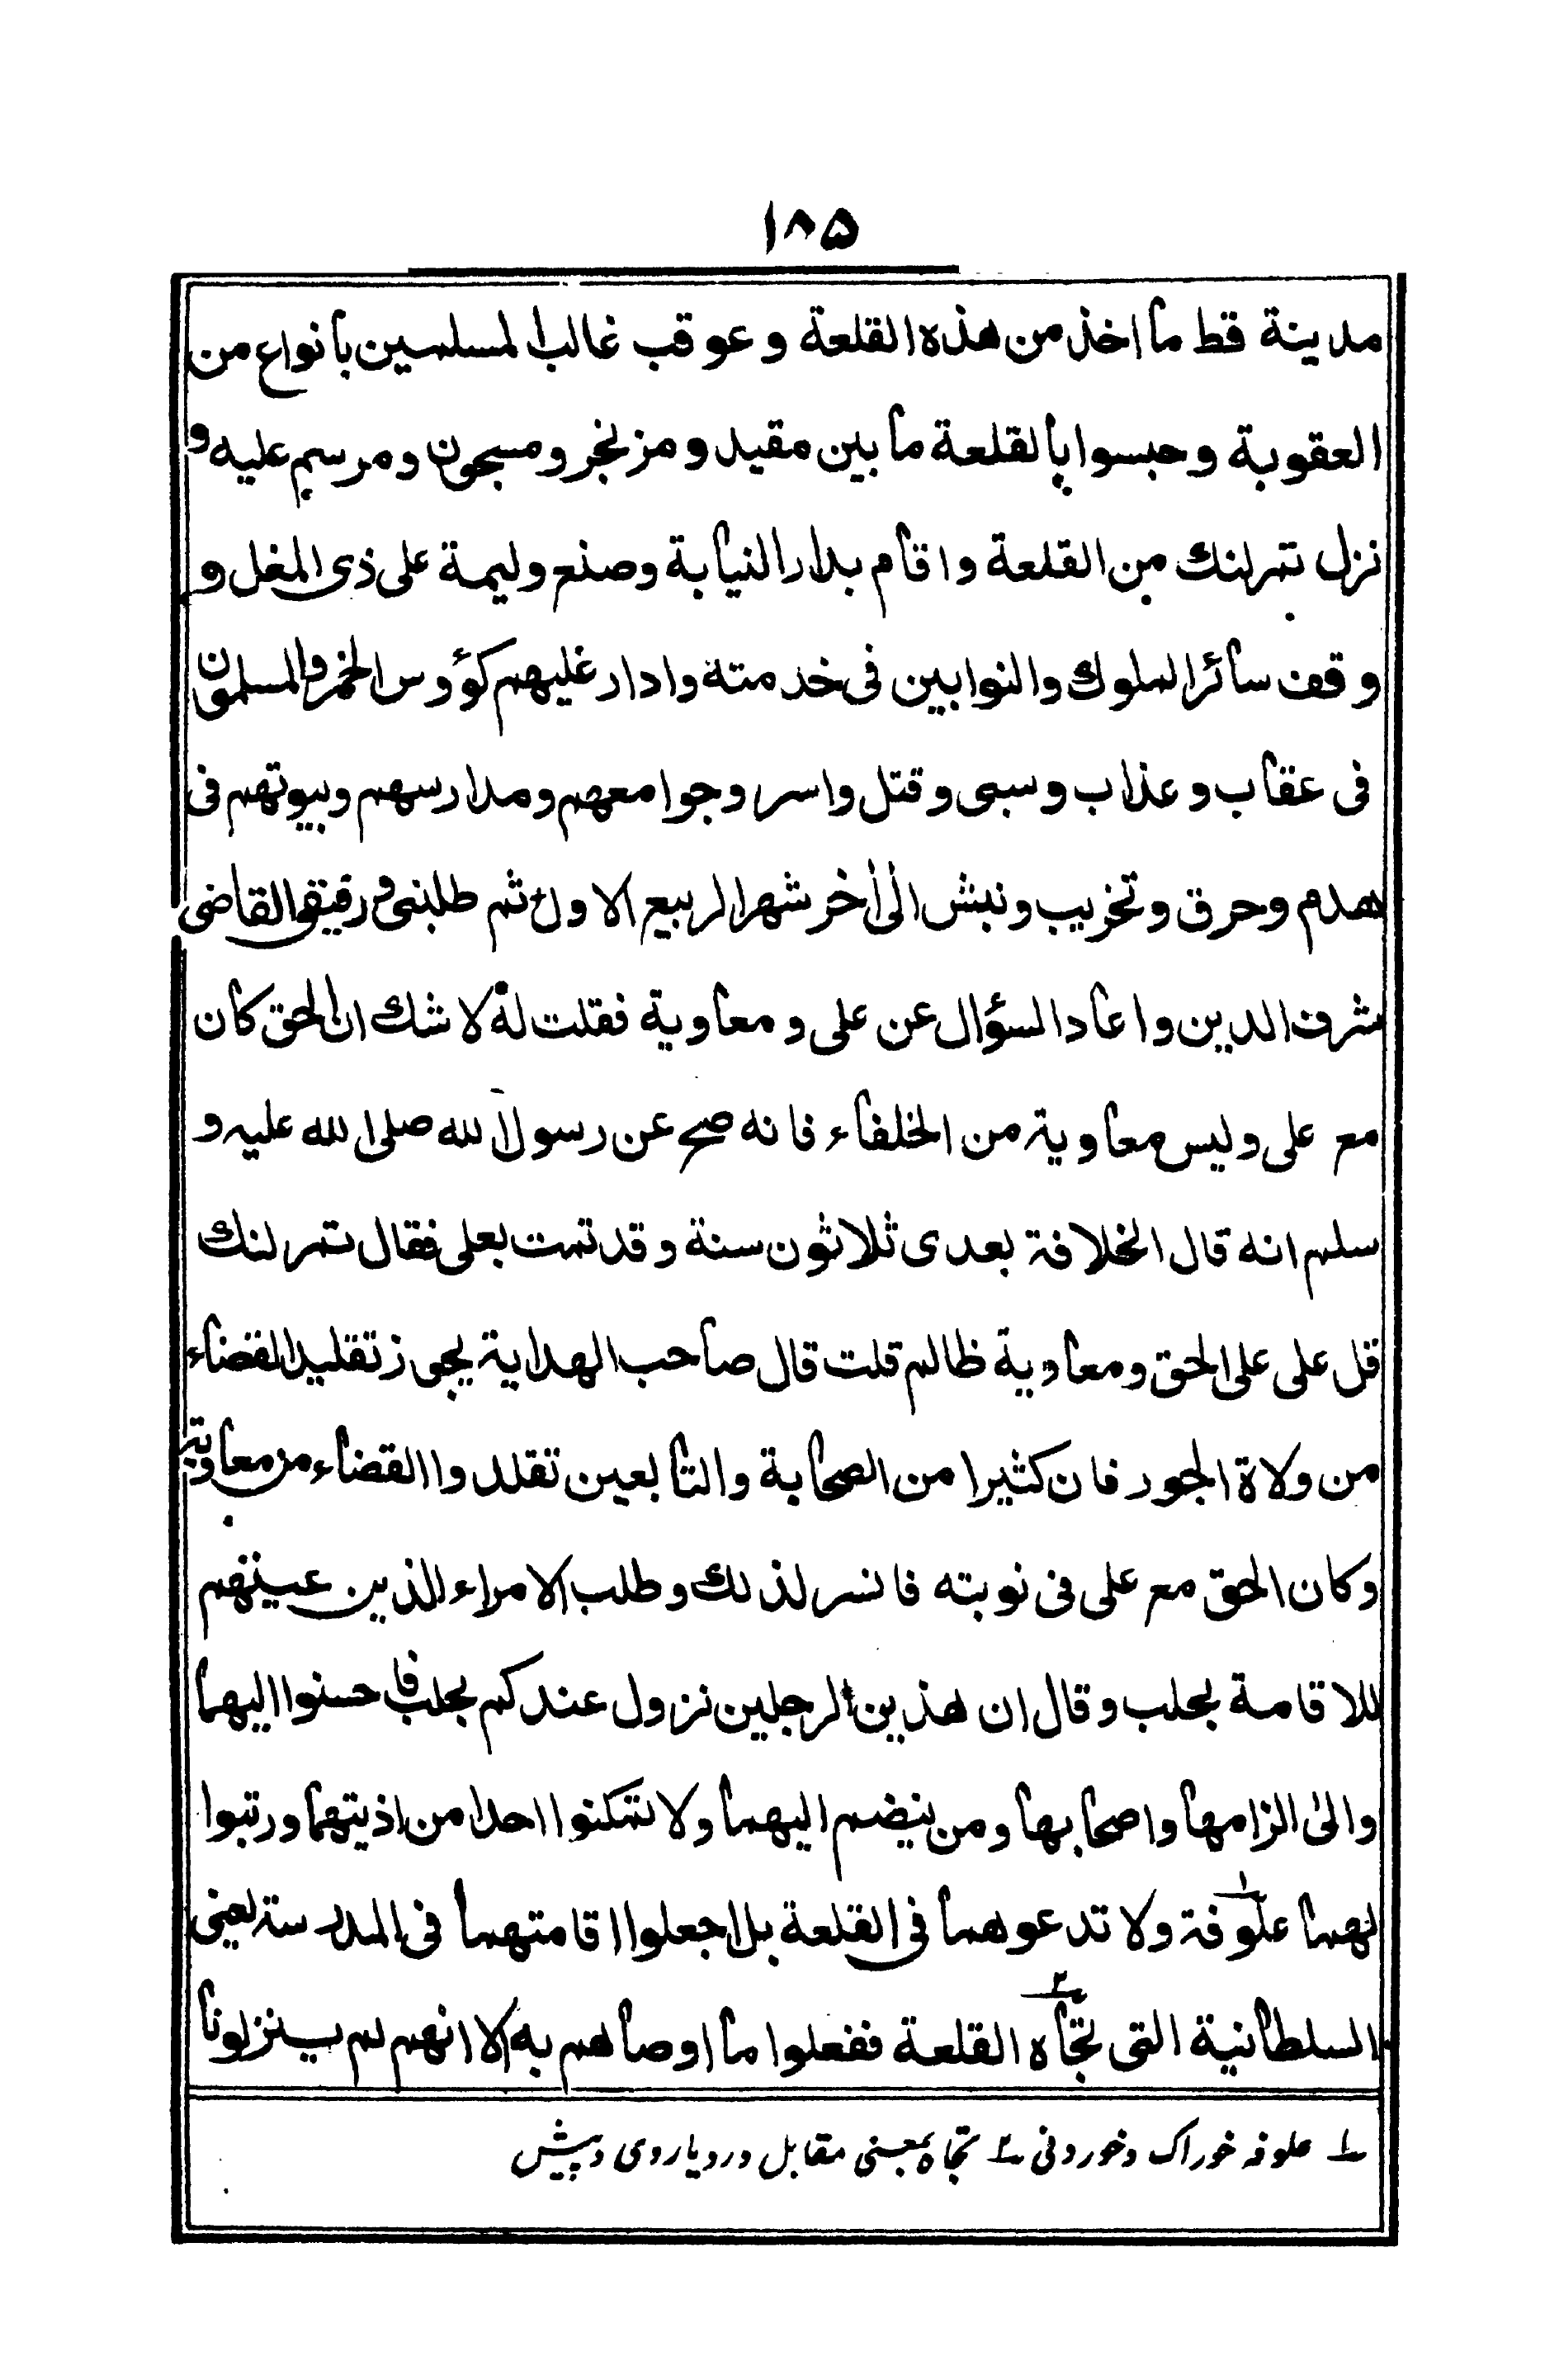 ۱۸۵
مدينة قط ما اخذ من هذه القلعة و عوقب غالب المسلمين بانواع من
العقوبة و حبسوا بالقلعة ما بين مقيد و مزنجر و مسجون و مرسم عليه و
نزل تمرلنك من القلعة و اقام بدار النيابة و صنع وليمة على ذى المغل و
وقف سائر الملوك والنوابين فى خدمته و ادار عليهم كؤوس الخمر والمسلمون
فى عقاب و عذاب و سبى و قتل و اسر و جوامعهم و مدارسهم و بيوتهم فى
هدم و حرق و تخريب و نبش الى اخر شهر الربيع الاول ثم طلبنى و رفيقى القاضى
شرف الدين و اعاد السؤال عن على و معاوية فقلت له لا شك ان الحق كان
مع على و ليس معاوية من الخلفاء فانه صح عن رسول الله صلى الله عليه و
سلم انه قال الخلافة بعدى ثلاثون سنة و قد تمت بعلى فقال تمرلنك
قل على على الحق و معاوية ظالم قلت قال صاحب الهداية يجوز تقليد القضاء
من ولاة الجور فان كثيرا من الصحابة والتابعين تقلدوا القضاء من معاوية
و كان الحق مع على فى نوبته فانسر لذلك و طلب الامراء الذين عينهم
للاقامة بحلب و قال ان هذين الرجلين نزول عندكم بحلب فاحسنوا اليهما
والى الزامها و اصحابها و من ينضم اليهما ولا تمكنوا احدا من اذيتهما و رتبوا
لهما علوفة ۱ ولا تدعوهما فى القلعة بل اجعلوا اقامتهما فى المدرسة يعنى
السلطانية التى تجاه ۲ القلعة ففعلوا ما اوصاهم به الا انهم لم ينزلونا
۱ علوفه خوراک و خوردنی ۲ تجاه بمعنی مقابل و رو یا روی و پیش